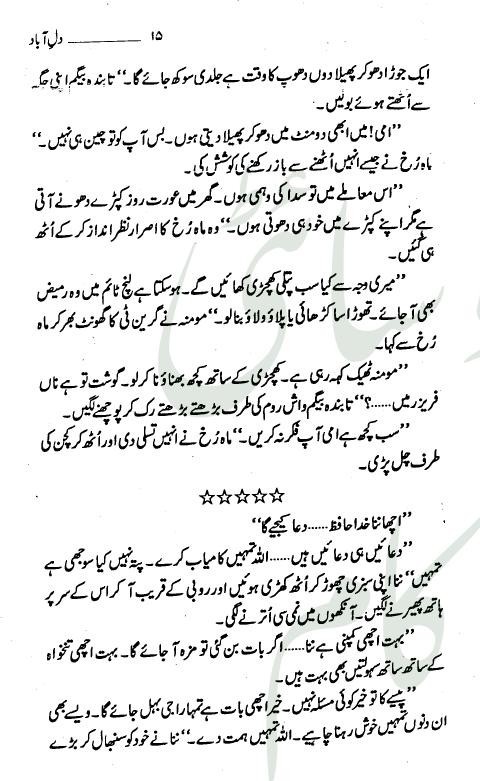 ۱۵ ــــــــــــ دلِ آباد
ایک جوڑا دھو کر پھیلا دوں دھوپ کا وقت ہے جلدی سوکھ جائے گا۔‘‘ تابندہ بیگم اپنی جگہ
سے اُٹھتے ہوئے بولیں۔
’’امی! میں ابھی دو منٹ میں دھو کر پھیلا دیتی ہوں۔ بس آپ کو تو چین ہی نہیں۔‘‘
ماہ رُخ نے جیسے انہیں اُٹھنے سے باز رکھنے کی کوشش کی۔
’’اس معاملے میں تو سدا کی وہمی ہوں۔ گھر میں عورت روز کپڑے دھونے آتی
ہے مگر اپنے کپڑے میں خود ہی دھوتی ہوں۔‘‘ وہ ماہ رُخ کا اصرار نظر انداز کر کے اُٹھ
ہی گئیں۔
’’میری وجہ سے کیا سب پتلی کھچڑی کھائیں گے۔ ہو سکتا ہے لنچ ٹائم میں وہ رمیض
بھی آ جائے۔ تھوڑا سا کڑھائی یا پلاؤ ولاؤ بنا لو۔‘‘ مومنہ نے گرین ٹی کا گھونٹ بھر کر ماہ
رُخ سے کہا۔
’’مومنہ ٹھیک کہہ رہی ہے۔ کھچڑی کے ساتھ کچھ بھناؤنا کر لو۔ گوشت تو ہے ناں
فریزر میں......؟‘‘ تابندہ بیگم واش روم کی طرف بڑھتے بڑھتے رک کر پوچھنے لگیں۔
’’سب کچھ ہے امی آپ فکر نہ کریں۔‘‘ ماہ رُخ نے انہیں تسلی دی اور اُٹھ کر کچن کی
طرف چل پڑی۔
☆☆☆☆☆
’’اچھا ننا خدا حافظ......دعا کیجیے گا‘‘
’’دعائیں ہی دعائیں ہیں......اللہ تمہیں کامیاب کرے۔ پتہ نہیں کیا سوجھی ہے
تمہیں‘‘ ننا اپنی سبزی چھوڑ کر اُٹھ کھڑی ہوئیں اور روبی کے قریب آ کر اس کے سر پر
ہاتھ پھیرنے لگیں۔ آنکھوں میں نمی سی اُترنے لگی۔
’’بہت اچھی کمپنی ہے ننا......اگر بات بن گئی تو مزہ آ جائے گا۔ بہت اچھی تنخواہ
کے ساتھ ساتھ سہولتیں بھی بہت ہیں۔
’’پیسے کا تو خیر کوئی مسئلہ نہیں۔ خیر اچھی بات ہے تمہارا جی بہل جائے گا۔ ویسے بھی
ان دنوں تمہیں خوش رہنا چاہیے۔ اللہ تمہیں ہمت دے۔‘‘ ننا نے خود کو سنبھال کر بڑے